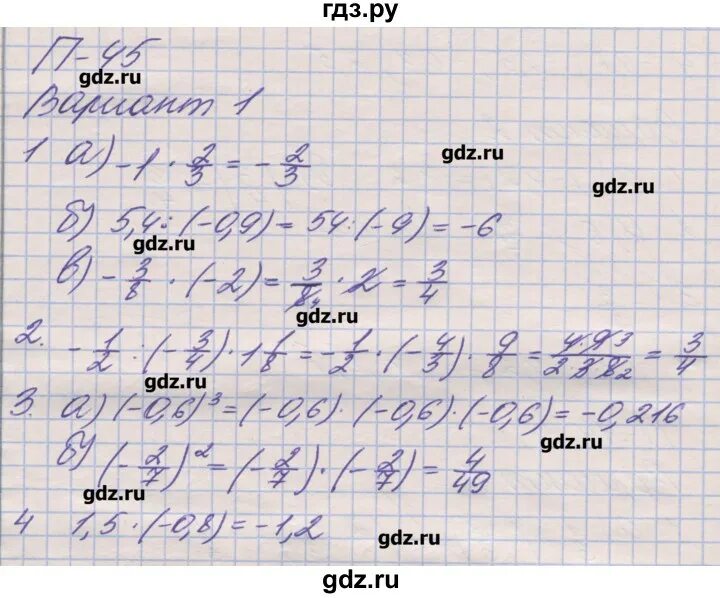 гдз.ру
П-45
gdz.ru
Вариант 1
1 а) -1 · 2/3 = - 2/3
gdz.ru
gdz.ru
б) 5,4 : (-0,9) = 54 : (-9) = -6
gdz.ru
в) - 3/8 · (-2) = 3/8 4 · 2 = 3/4
gdz.ru
2. - 1/2 : (- 3/4) · 1 1/8 = - 1/2 · (- 4/3) · 9/8 = 4·9 3/2·3·8 2 = 3/4
gdz.ru
3. а) (-0,6)³ = (-0,6) · (-0,6) · (-0,6) = -0,216
gdz.ru
б) (- 2/7)² = (- 2/7) · (- 2/7) = 4/49
gdz.ru
4 1,5 · (-0,8) = -1,2
gdz.ru
gdz.ru